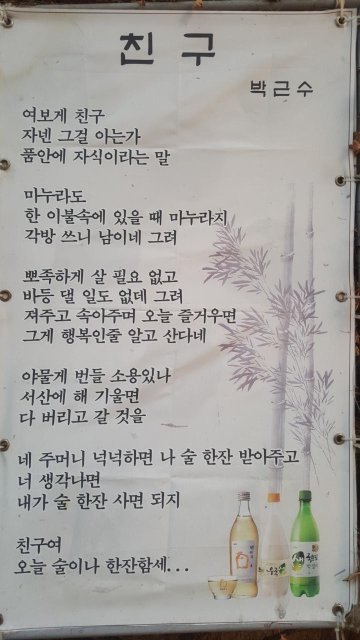 친구
박근수
여보게 친구
자넨 그걸 아는가
품안에 자식이라는 말
마누라도
한 이불속에 있을 때 마누라지
각방 쓰니 남이네 그려
뽀족하게 살 필요 없고
바등 댈 일도 없데 그려
져주고 속아주며 오늘 즐거우면
그게 행복인줄 알고 산다네
야물게 번들 소용있나
서산에 해 기울면
다 버리고 갈 것을
네 주머니 넉넉하면 나 술 한잔 받아주고
너 생각나면
내가 술 한잔 사면 되지
친구여
오늘 술이나 한잔함세...